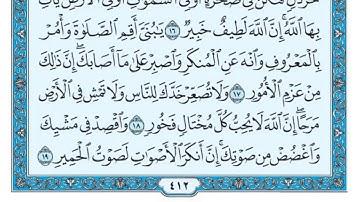 خَرْدَلٍ فَتَكُن فِي صَخْرَةٍ أَوْ فِي السَّمَٰوَٰتِ أَوْ فِي الْأَرْضِ يَأْتِ
بِهَا اللَّهُ ۚ إِنَّ اللَّهَ لَطِيفٌ خَبِيرٌ ١٦ يَٰبُنَيَّ أَقِمِ الصَّلَوٰةَ وَأْمُرْ
بِالْمَعْرُوفِ وَانْهَ عَنِ الْمُنكَرِ وَاصْبِرْ عَلَىٰ مَا أَصَابَكَ ۖ إِنَّ ذَٰلِكَ
مِنْ عَزْمِ الْأُمُورِ ١٧ وَلَا تُصَعِّرْ خَدَّكَ لِلنَّاسِ وَلَا تَمْشِ فِي الْأَرْضِ
مَرَحًا ۖ إِنَّ اللَّهَ لَا يُحِبُّ كُلَّ مُخْتَالٍ فَخُورٍ ١٨ وَاقْصِدْ فِي مَشْيِكَ
وَاغْضُضْ مِن صَوْتِكَ ۚ إِنَّ أَنكَرَ الْأَصْوَٰتِ لَصَوْتُ الْحَمِيرِ ١٩
٤١٢